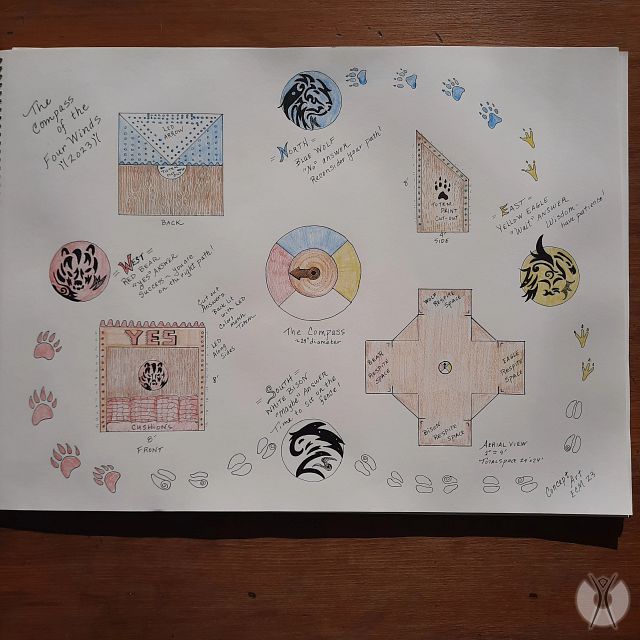 The
Compass
of the
Four Winds
!!(2023)!!
LED
ARROW
BACK
= NORTH =
BLUE WOLF
"No" ANSWER
Reconsider your path!
8'
TOTEM
PRINT
CUT-OUT
4'
SIDE
= EAST =
YELLOW EAGLE
"Wait" ANSWER
Wisdom ~
have patience!
= WEST =
RED BEAR
"YES" ANSWER
Success ~ you are
on the right path!
Cut out
Answers
Back Lit
with LED
Colors
match
Totem
LED
Along
Sides
8'
YES
CUSHIONS
8'
FRONT
The Compass
diameter
= SOUTH =
WHITE BISON
"Maybe" ANSWER
Time to sit on the
fence!
WOLF
RESPITE
SPACE
BEAR
RESPITE
SPACE
EAGLE
RESPITE
SPACE
BISON
RESPITE
SPACE
AERIAL VIEW
Total space 24'x24'
Concept Art